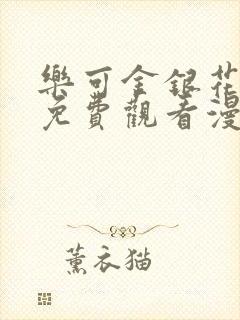 樂可金銀花
免費觀看漫
薰衣猫